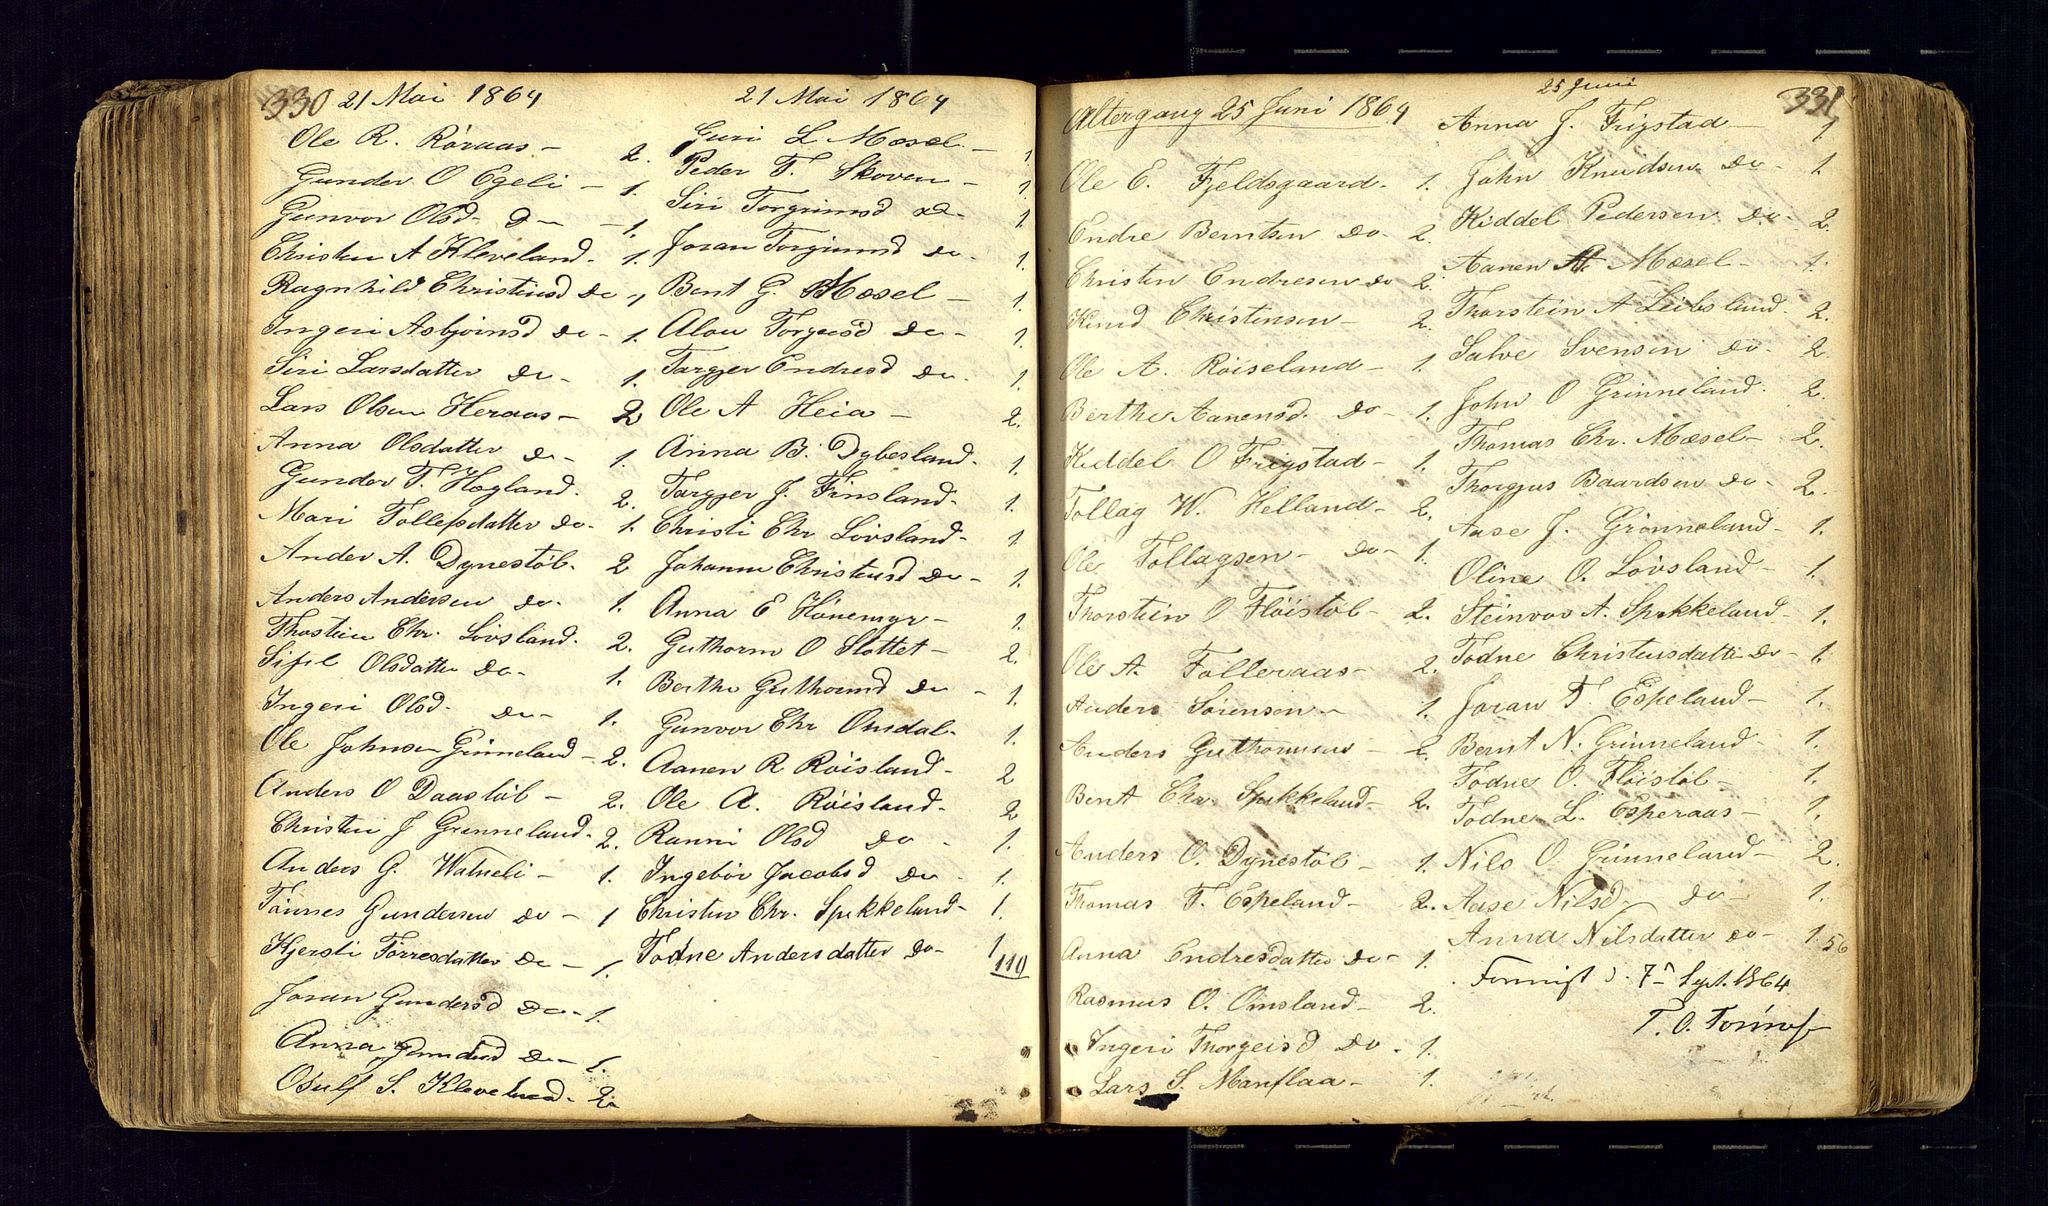 330 21 Mai 1864
Ole R. Røraas - 2.
Gunder O Egeli - 1.
Gunvor Olsd. D - - 1.
Christen A Kleveland. 1.
Ragnhild Christensd do - 1
Ingeri Asbjørnsd do - 1.
Siri Larsdatter do - 1.
Lars Olsen Heraas - 2
Anna Olsdatter do - 1.
Gunder T. Høgland. 2.
Mari Tollefsdatter do - 1.
Ander A. Dynestøl. 2
Anders Andersen do - 1.
Thostein Chr. Løvsland. 2.
Sifsel Olsdatter do - 1.
Ingeri Olsd. do - 1.
Ole Johnsen Grinneland - 2.
Anders O Daastøl - 2.
Christen J Grønneland. 2.
Anders G. Watneli - 1.
Tønnes Gundersen do - 1
Kjersti Tørresdatter do - 1.
Joran Gundersd do - 1.
Anna Gundersd do - 1.
Osulf S. Kleveland. 2.
21 Mai 1864
Guri L Mæsel - 1.
Peder T. Skoven - 1.
Siri Torgrimsd do - 1.
Joran Torgrimsd do - 1.
Bent G. Mæsel - 1.
Alau Torgersd do - 1.
Targjer Endresd do - 1.
Ole A Heia - 2.
Anna B. Dybesland. 1.
Targjer J. Finsland. 1.
Christi Chr Løvsland - 1.
Johanne Christensd do - 1.
Anna E Hønemyr - 1.
Guthorm O Slottet - 2.
Berthe Guthormsd do - 1.
Gunvor Chr Omdal. 1.
Aanen R Røisland - 2
Ole A. Røisland. 2
Ranni Olsd do - 1.
Ingebør Jacobsd do - 1.
Christen Chr. Spekkeland - 1.
Todne Andersdatter do - 1
110
Altergang 25 Juni 1864
Ole E. Fjeldsgaard. 1.
Endre Berntsen do - 2.
Christen Endresen do 2.
Knud Christensen - 2.
Ole A. Røiseland - 1.
Berthe Aanensd. do - 1.
Kiddel O Frigstad - 1.
Tollag W. Helland - 2.
Ole Tollagsen - do - 1.
Thorstein O Fløistøl - 2.
Ole A. Folleraas - 2.
Anders Sørensen - 1.
Anders Guthormsen - 2.
Bent Chr. Spekkeland - 2.
Anders O. Dynestøl - 1.
Thomas T. Espeland - 2.
Anna Endresdatter do - 1.
Rasmus O. Omsland - 2.
Ingeri Thorgeisd do - 1.
Lars S. Manflaa - 1.
25 Juni 331
Anna J. Frigstad - 1
John Knudsen do - 1.
Kiddel Pedersen do - 2.
Aanen A Mæsel - 1.
Thorstein A Leibsland. 2.
Salve Svensen do - 2.
John O Grinneland. 2.
Thomas Chr. Mæsel - 2.
Thorgjus Baardsen do - 2.
Aase J. Grønneland - 1.
Oline O. Løvsland - 1.
Steinvor A. Spekkeland - 1.
Todne Christensdatter do - 1.
Joran T Espeland - 1.
Bernt N. Grinneland - 1.
Todne O. Fløistøl - 1.
Todne L. Esperaas - 1.
Nils O. Grinneland - 2.
Aase Nilsd - do - 1.
Anna Nilsdatter do - 1. 56
7 Sept. 1864